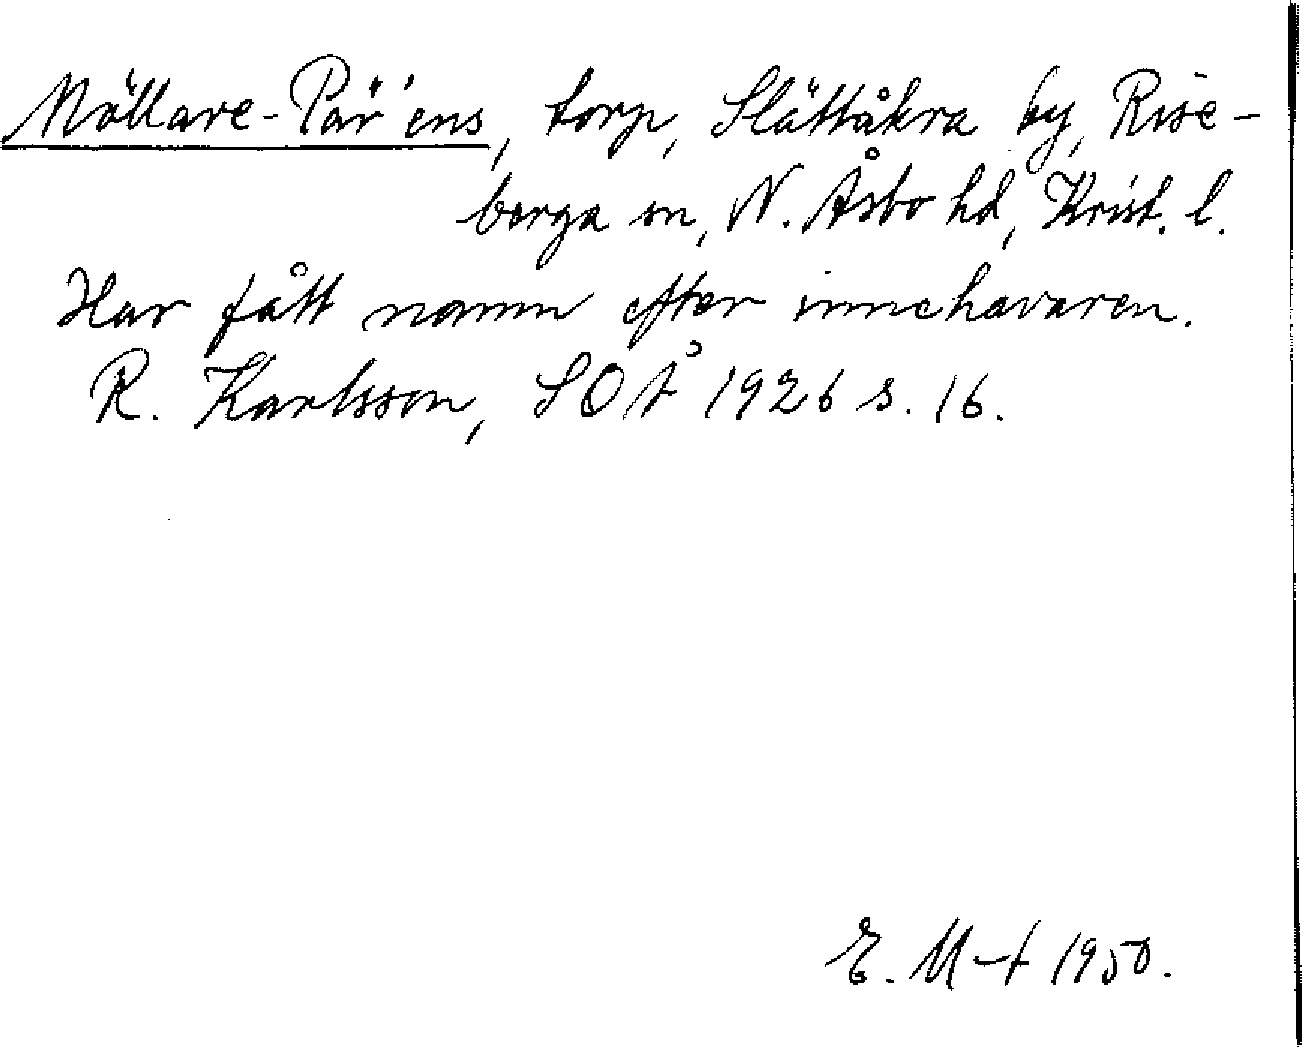 Möllare-Pär'ens, torp, Slättåkra by, Rise-
berga sn, N. Åsbo hd, Krist. l.
Har fått namn efter innehavaren.
R. Karlsson, SOÅ 1926 s. 16.
E. M-t 1950.